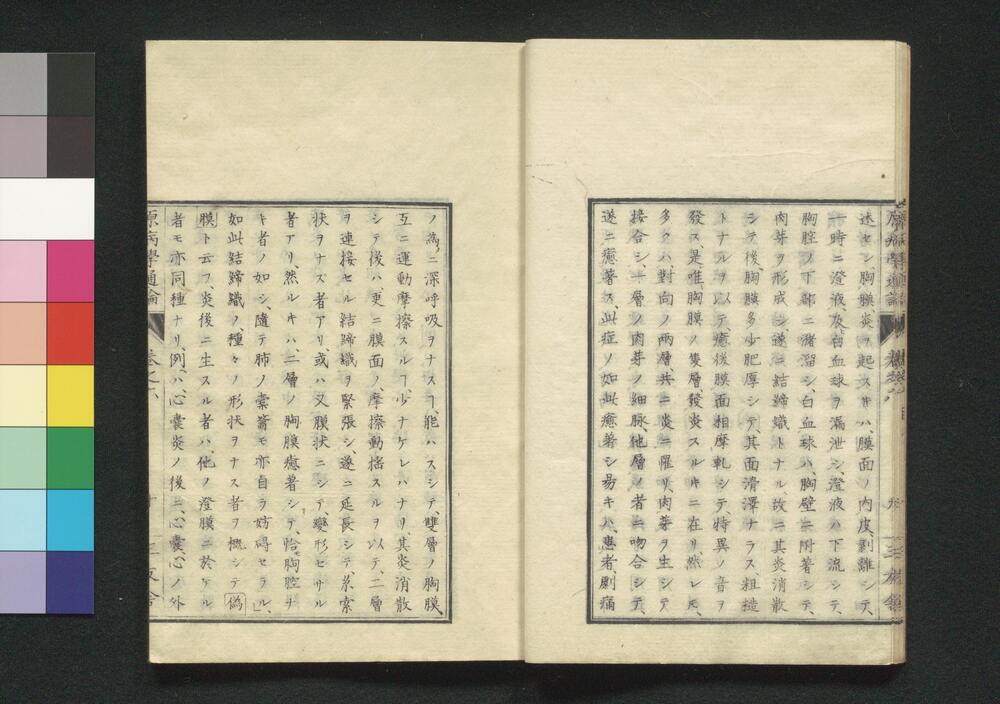 述セシ、胸膜炎ヲ起スキハ、膜面ノ内皮、剥離シテ、
一時ニ澄液、及白血球ヲ漏泄シ、澄液ハ下流シテ、
胸腔ノ下部ニ瀦溜シ、白血球ハ、胸壁ニ附著シテ、
肉芽ヲ形成シ、遂ニ結締織トナル、故ニ其炎消散
シテ後、胸膜多少肥厚シテ、其面滑澤ナラス、粗糙
トナルヲ以テ、癒後膜面相摩軋シテ、特異ノ音ヲ
發ス、是唯、胸膜ノ隻層、發炎スルキニ在リ、然レ𪜈、
多クハ對向ノ兩層、共ニ炎ニ罹リ、肉芽ヲ生シテ
接合シ、一層ノ肉芽ノ細脉、他層ノ者ニ吻合シテ、
遂ニ癒著ス、此症ノ如此癒著シ易キハ、患者、劇痛
ノ爲ニ深呼吸ヲナスヿ能ハスシテ、雙層ノ胸膜、
互ニ運動摩擦スルヿ、少ナケレハナリ、其炎消散
シテ後ハ、更ニ膜面ノ、摩擦動搖スルヲ以テ、二層
ヲ連接セル結締織ヲ緊張シ、遂ニ延長シテ、索條
状ヲナス者アリ、或ハ又膜状ニシテ、變形セサル
者アリ、然ルキハ、二層ノ胸膜癒著シテ、恰モ胸腔ナ
キ者ノ如シ、隨テ肺ノ槖籥モ亦自ラ妨碍セラル、」
如此結締織ノ、種々ノ形状ヲナス者ヲ概シテ僞
膜ト云フ、炎後ニ生スル者ハ、他ノ澄膜ニ於ケル
者モ亦同種ナリ、例ハ、心囊炎ノ後ニ、心囊、心ノ外
原病學通論 卷之六 十 三友舎